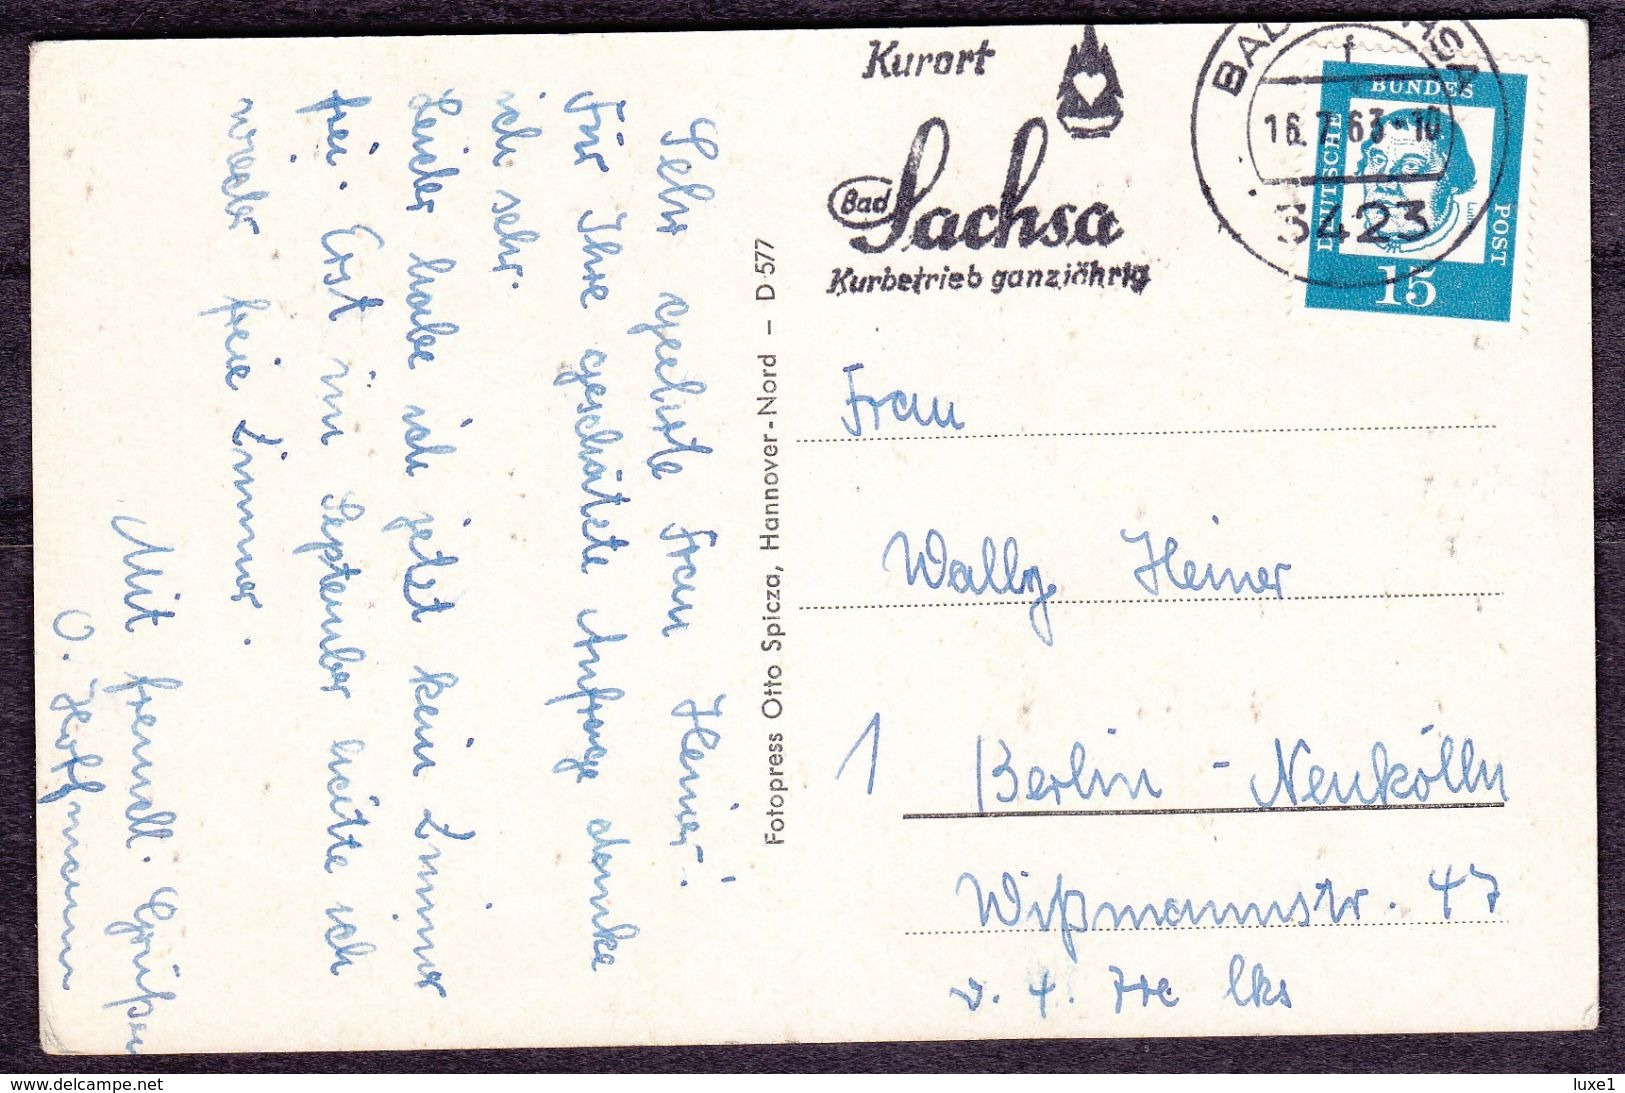 Sehr geehrte Frau Heiner!
Für Ihre geschätzte Anfrage danke
ich sehr.
Leider habe ich jetzt kein Zimmer
frei. Erst im September hätte ich
wieder freie Zimmer.
Mit freundl. Grüßen
O. Hoffmann
Fotopress Otto Spicza, Hannover-Nord – D 577
Kurort
Bad Sachsa
Kurbetrieb ganzjährig
16.7.63-10
3423
DEUTSCHE
BUNDES
POST
15
Frau
Wally Heiner
1 Berlin - Neukölln
Wißmannstr. 47
v. 4. Tre lks
www.delcampe.net
luxe1